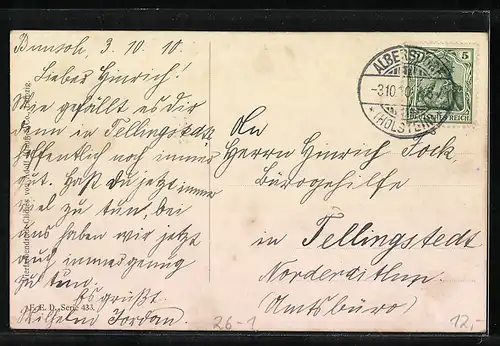 Bunsoh, 3. 10. 10.
Lieber Hinrich!
Wie gefällt es dir
denn in Tellingstedt
hoffentlich noch immer
gut. Hast Du jetzt immer
viel zu tun, bei
uns haben wir jetzt
auch immer genug
zu tun.
Es grüßt
Wilhelm Jordan.
E. E. D., Serie 433.
ALBERSDORF
-3.10.10.
*(HOLSTEIN)
5
DEUTSCHES REICH
An
Herrn Hinrich Fock,
Bürogehilfe
in Tellingstedt
Norderdithm.
(Amtsbüro)
26-1
12,-